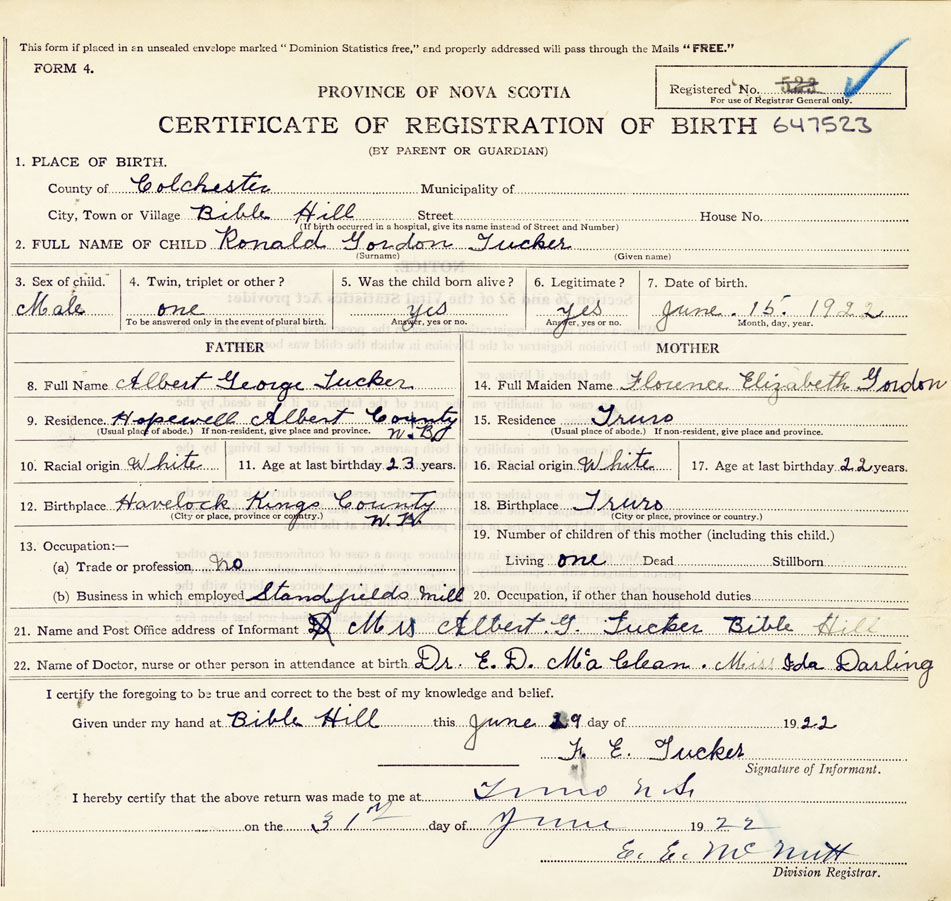 This form if placed in an unsealed envelope marked "Dominion Statistics free," and properly addressed will pass through the Mails "FREE."
FORM 4.
Registered No. 523
For use of Registrar General only.
PROVINCE OF NOVA SCOTIA
CERTIFICATE OF REGISTRATION OF BIRTH 647523
(BY PARENT OR GUARDIAN)
1. PLACE OF BIRTH.
County of Colchester Municipality of
City, Town or Village Bible Hill Street House No.
(If birth occurred in a hospital, give its name instead of Street and Number)
2. FULL NAME OF CHILD Ronald Gordon Tucker
(Surname) (Given name)
3. Sex of child. 4. Twin, triplet or other? 5. Was the child born alive? 6. Legitimate? 7. Date of birth.
Male one yes yes June. 15. 1922
To be answered only in the event of plural birth. Answer, yes or no. Answer, yes or no. Month, day, year.
FATHER MOTHER
8. Full Name Albert George Tucker 14. Full Maiden Name Florence Elizabeth Gordon
9. Residence Hopewell Albert County N.B. 15. Residence Truro
(Usual place of abode.) If non-resident, give place and province. (Usual place of abode.) If non-resident, give place and province.
10. Racial origin White 11. Age at last birthday 23 years. 16. Racial origin White 17. Age at last birthday 22 years.
12. Birthplace Havelock Kings County N.B. 18. Birthplace Truro
(City or place, province or country.) (City or place, province or country.)
13. Occupation:— 19. Number of children of this mother (including this child.)
(a) Trade or profession no Living one Dead Stillborn
(b) Business in which employed Standfields Mill 20. Occupation, if other than household duties.
21. Name and Post Office address of Informant Mrs Albert. G. Tucker Bible Hill
22. Name of Doctor, nurse or other person in attendance at birth Dr. E. D. McClean. Miss Ida Darling
I certify the foregoing to be true and correct to the best of my knowledge and belief.
Given under my hand at Bible Hill this June 29 day of 1922
F. E. Tucker
Signature of Informant.
I hereby certify that the above return was made to me at Truro N.S.
on the 31st day of June 1922
E. E. McNutt
Division Registrar.